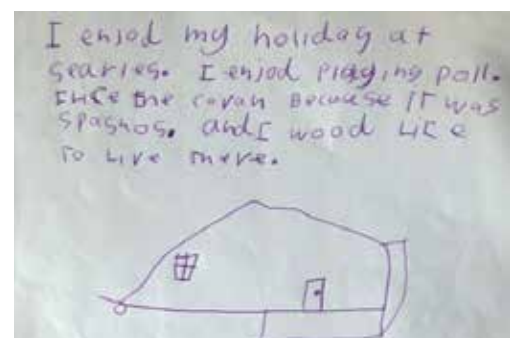 I enjod my holiday at
searies. I enjod Playing Poll.
I like the cavan Because it was
spasnos. and I wood like
To Live there.